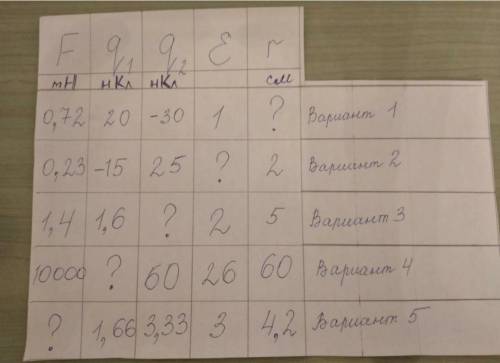 F q1 q2 ε r
mH нКл нКл см
0,72 20 -30 1 ? Вариант 1
0,23 -15 25 ? 2 Вариант 2
1,4 1,6 ? 2 5 Вариант 3
10000 ? 60 26 60 Вариант 4
? 1,66 3,33 3 4,2 Вариант 5